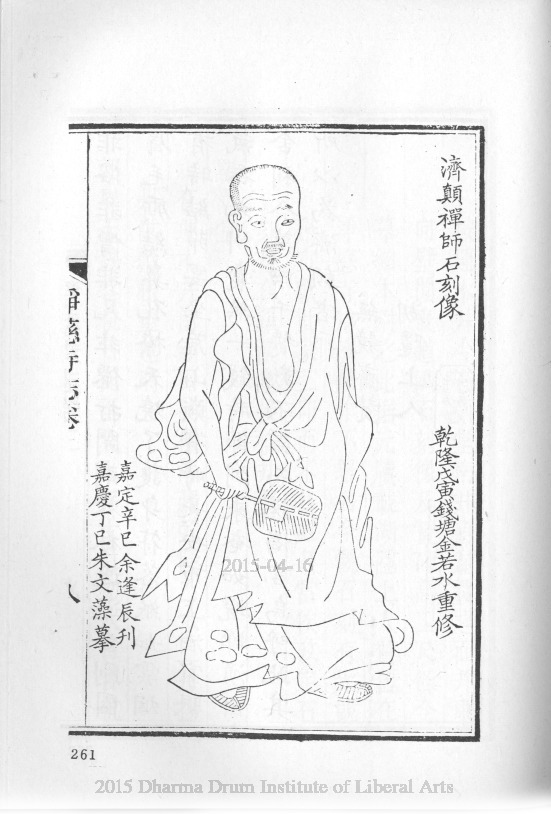 濟顛禪師石刻像
乾隆戊寅錢塘金若水重修
嘉定辛巳余逢辰刊
嘉慶丁巳朱文藻摹
淨慈寺志卷
八
2015-04-16
261
2015 Dharma Drum Institute of Liberal Arts